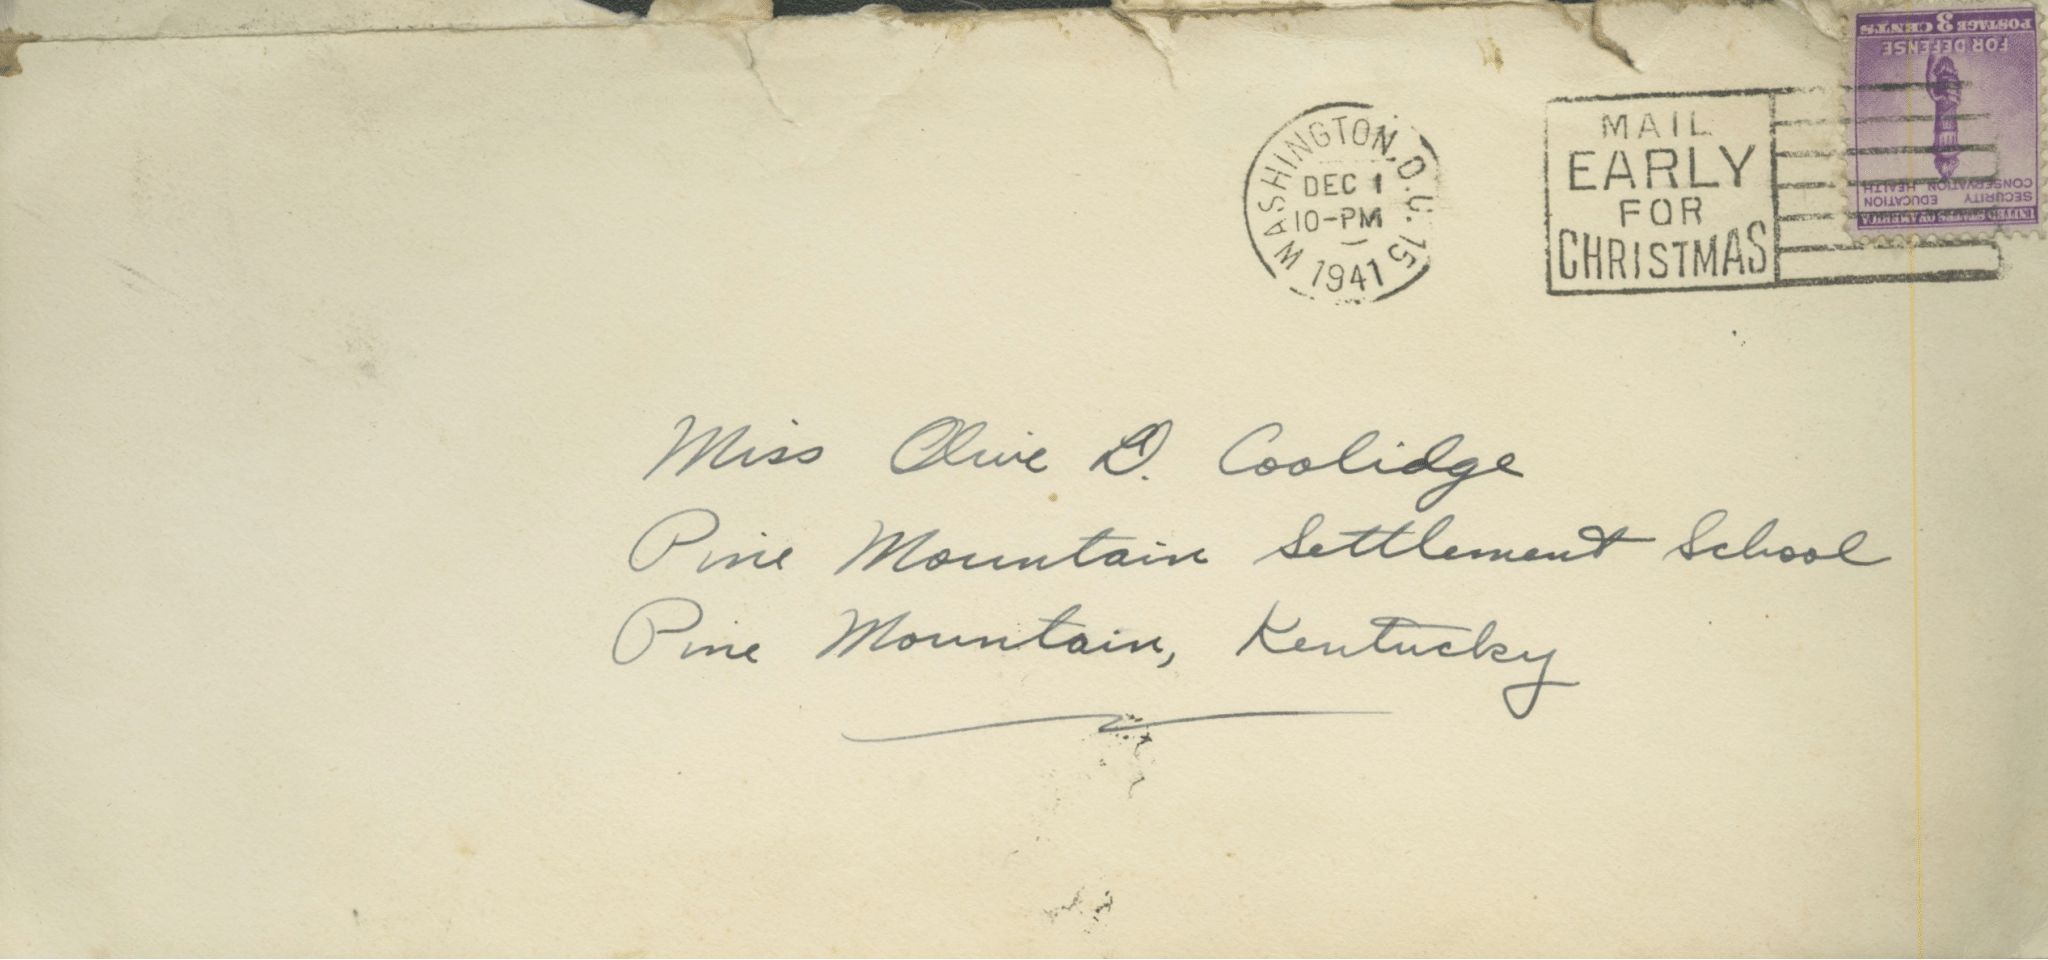 WASHINGTON, D.C. 15
DEC 1
10-PM
1941
MAIL
EARLY
FOR
CHRISTMAS
POSTAGE 3 CENTS
FOR DEFENSE
SECURITY EDUCATION
CONSERVATION HEALTH
UNITED STATES OF AMERICA
Miss Olive D. Coolidge
Pine Mountain Settlement School
Pine Mountain, Kentucky